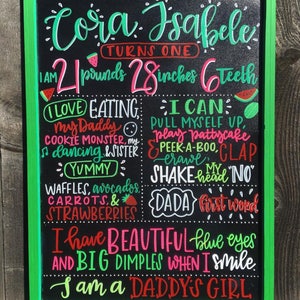 Cora Isabele
TURNS ONE
I AM 21 pounds 28 inches 6 TEETH
I LOVE EATING,
my Daddy
COOKIE MONSTER, my
dancing, SISTER
YUMMY
WAFFLES, avocados,
CARROTS, &
STRAWBERRIES
I CAN
PULL MYSELF UP,
play pattycake
PEEK-A-BOO, CLAP
crawl
SHAKE MY head "NO"
DADA first word
I have BEAUTIFUL blue eyes
AND BIG DIMPLES WHEN I smile
I am a DADDY'S GIRL